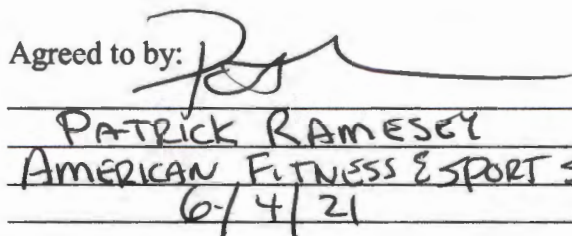 Agreed to by:
PATRICK RAMESEY
AMERICAN FITNESS & SPORTS
6/4/21